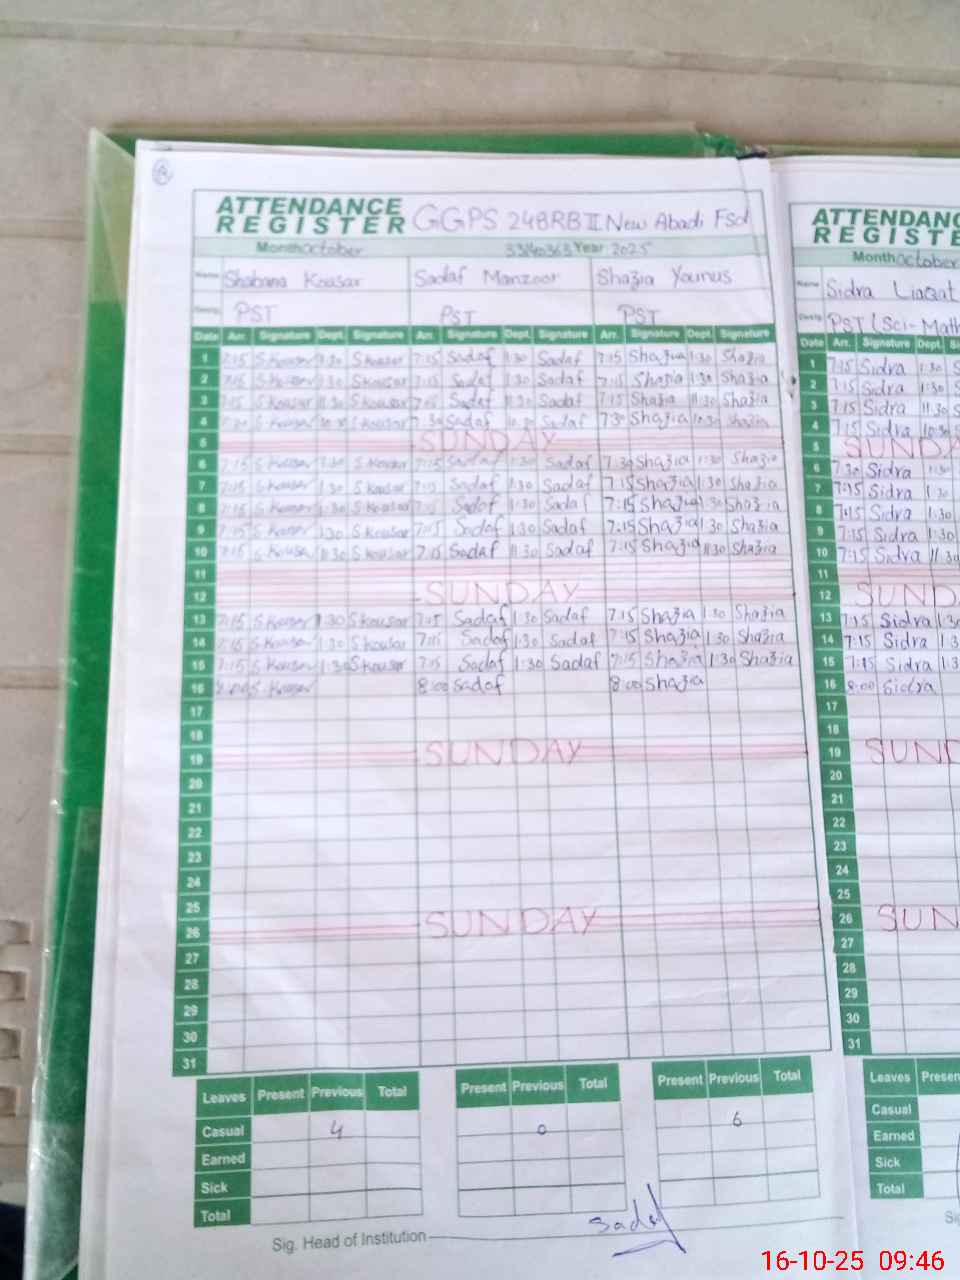 ATTENDANCE REGISTER GGPS 248RB II New Abadi Fsd
Month October 33140363 Year 2025
Name Shabana Kousar Sadaf Manzoor Shazia Younus
PST PST PST
Date Arr. Signature Dept. Signature Arr. Signature Dept. Signature Arr. Signature Dept. Signature
1 7:15 S.Kousar 1:30 S.Kousar 7:15 Sadaf 1:30 Sadaf 7:15 Shazia 1:30 Shazia
2 7:15 S.Kousar 1:30 S.Kousar 7:15 Sadaf 1:30 Sadaf 7:15 Shazia 1:30 Shazia
3 7:15 S.Kousar 11:30 S.Kousar 7:15 Sadaf 11:30 Sadaf 7:15 Shazia 11:30 Shazia
4 7:30 S.Kousar 10:30 S.Kousar 7:30 Sadaf 10:30 Sadaf 7:30 Shazia 10:30 Shazia
5 SUNDAY
6 7:15 S.Kousar 1:30 S.Kousar 7:15 Sadaf 1:30 Sadaf 7:30 Shazia 1:30 Shazia
7 7:15 S.Kousar 1:30 S.Kousar 7:15 Sadaf 1:30 Sadaf 7:15 Shazia 1:30 Shazia
8 7:15 S.Kousar 1:30 S.Kousar 7:15 Sadaf 1:30 Sadaf 7:15 Shazia 1:30 Shazia
9 7:15 S.Kousar 1:30 S.Kousar 7:15 Sadaf 1:30 Sadaf 7:15 Shazia 1:30 Shazia
10 7:15 S.Kousar 11:30 S.Kousar 7:15 Sadaf 11:30 Sadaf 7:15 Shazia 11:30 Shazia
11
12 SUNDAY
13 7:15 S.Kousar 1:30 S.Kousar 7:15 Sadaf 1:30 Sadaf 7:15 Shazia 1:30 Shazia
14 7:15 S.Kousar 1:30 S.Kousar 7:15 Sadaf 1:30 Sadaf 7:15 Shazia 1:30 Shazia
15 7:15 S.Kousar 1:30 S.Kousar 7:15 Sadaf 1:30 Sadaf 7:15 Shazia 1:30 Shazia
16 8:00 S.Kousar 8:00 Sadaf 8:00 Shazia
17
18
19 SUNDAY
20
21
22
23
24
25
26 SUNDAY
27
28
29
30
31
Leaves Present Previous Total Present Previous Total Present Previous Total
Casual 4 0 6
Earned
Sick
Total
Sig. Head of Institution Sadaf
ATTENDANC
REGISTE
Month October
Name Sidra Liaqat
PST (Sci-Math
Date Arr. Signature Dept. Si
1 7:15 Sidra 1:30 S
2 7:15 Sidra 1:30 S
3 7:15 Sidra 11:30 S
4 7:15 Sidra 10:30 S
5 SUNDA
6 7:30 Sidra 1:30
7 7:15 Sidra 1:30
8 7:15 Sidra 1:30
9 7:15 Sidra 1:30
10 7:15 Sidra 11:30
11
12 SUNDA
13 7:15 Sidra 1:30
14 7:15 Sidra 1:3
15 7:15 Sidra 1:3
16 8:00 Sidra
17
18
19 SUND
20
21
22
23
24
25
26 SUN
27
28
29
30
31
Leaves Presen
Casual
Earned
Sick
Total
Sig
16-10-25 09:46